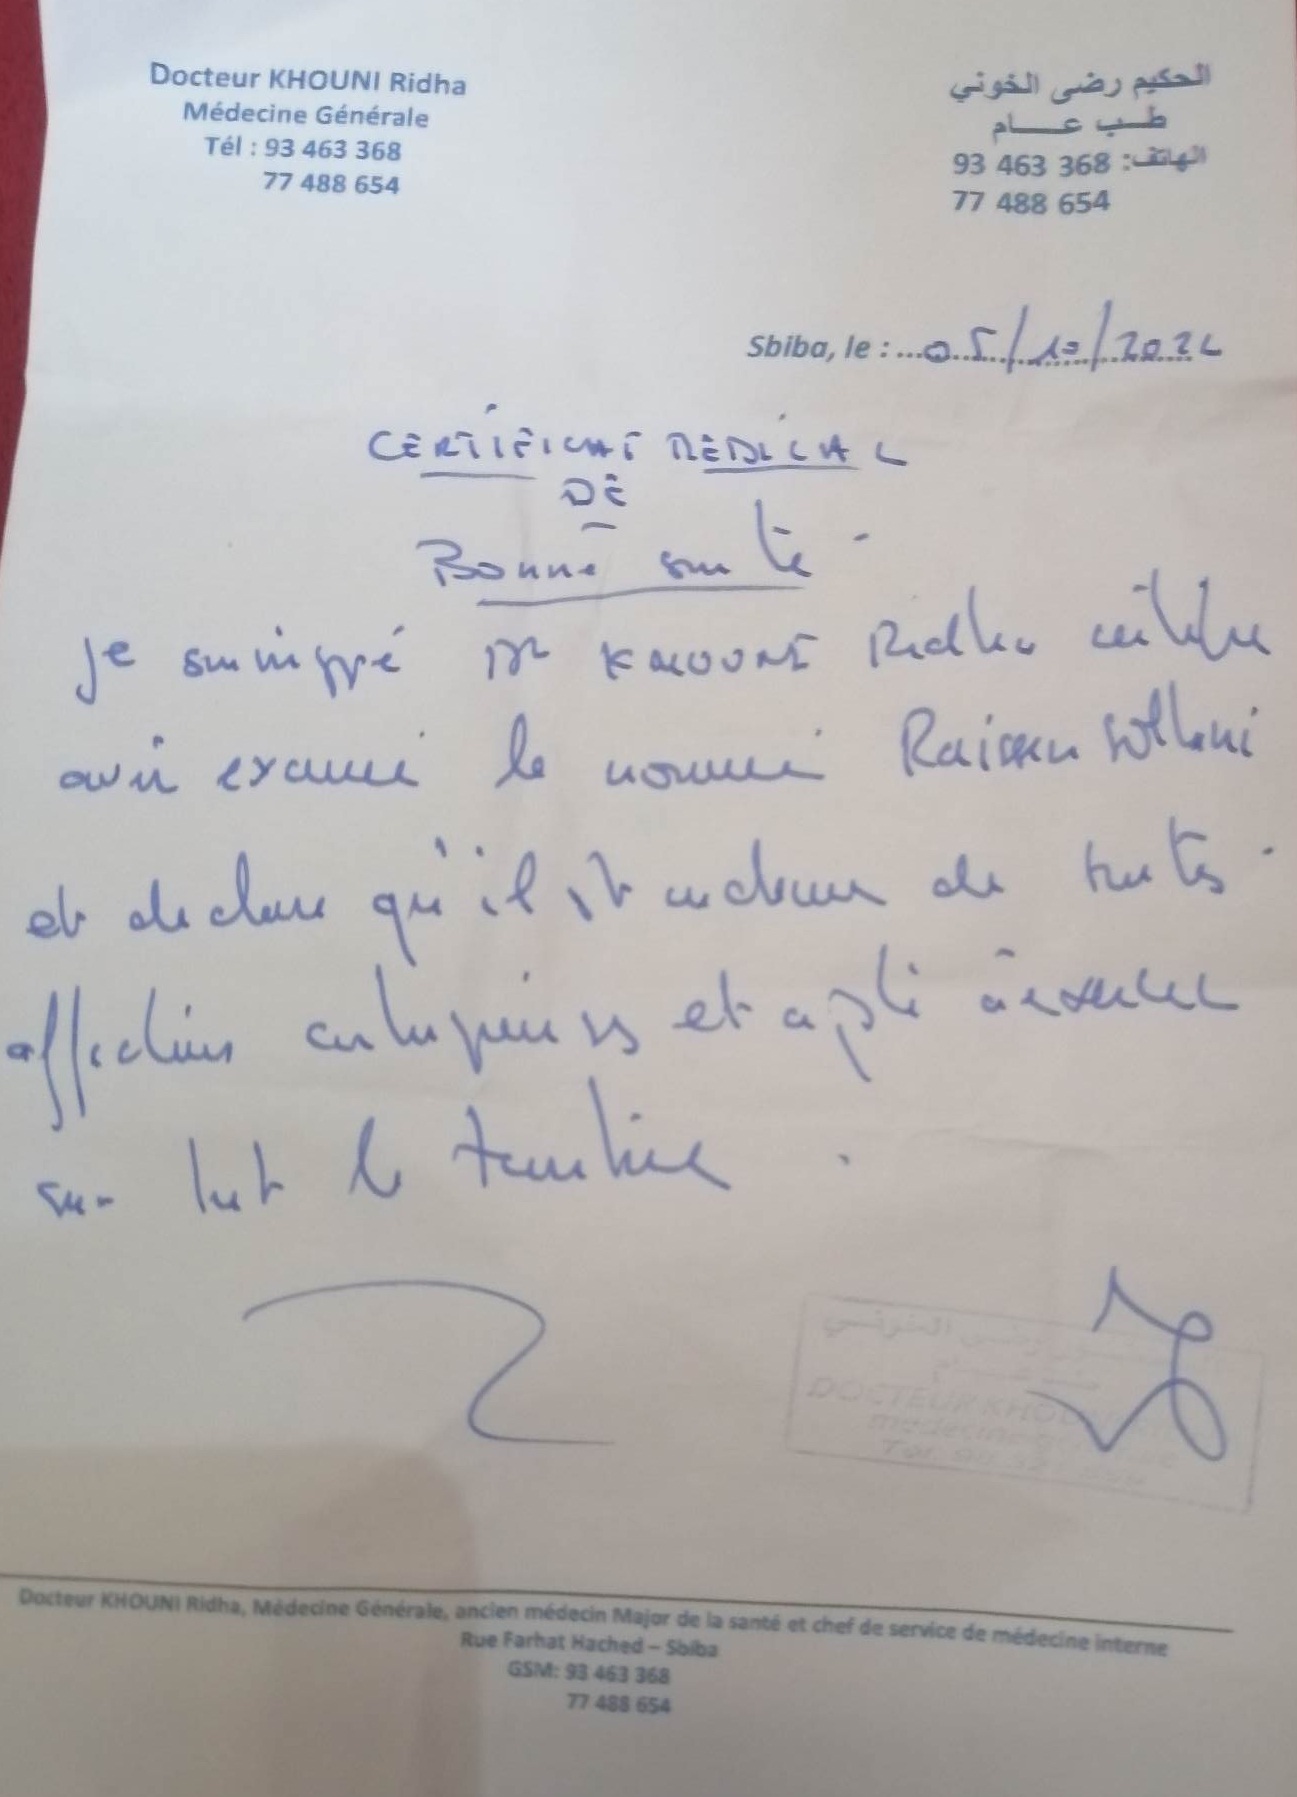 Docteur KHOUNI Ridha
Médecine Générale
Tél : 93 463 368
77 488 654
الحكيم رضى الخوني
طب عام
الهاتف: 93 463 368
77 488 654
Sbiba, le : 05/10/202
CERTIFICAT MEDICAL
DE
Bonne santé
Je soussigné Dr KHOUNI Ridha certifie
avoir examiné le nommé
et declare qu'il est indemne de toutes
affections contagieuses et apte à exercer
sur tout le territoire.
DOCTEUR KHOUNI
médecine
Docteur KHOUNI Ridha, Médecine Générale, ancien médecin Major de la santé et chef de service de médecine interne
Rue Farhat Hached – Sbiba
GSM: 93 463 368
77 488 654